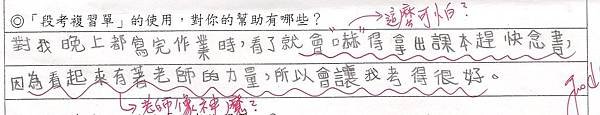 ◎「段考複習單」的使用，對你的幫助有哪些？
這麼可怕？
對我晚上都寫完作業時，看了就會"嚇"得拿出課本趕快念書，
因為看起來有著老師的力量，所以會讓我考得很好。
老師像神魔？
Good